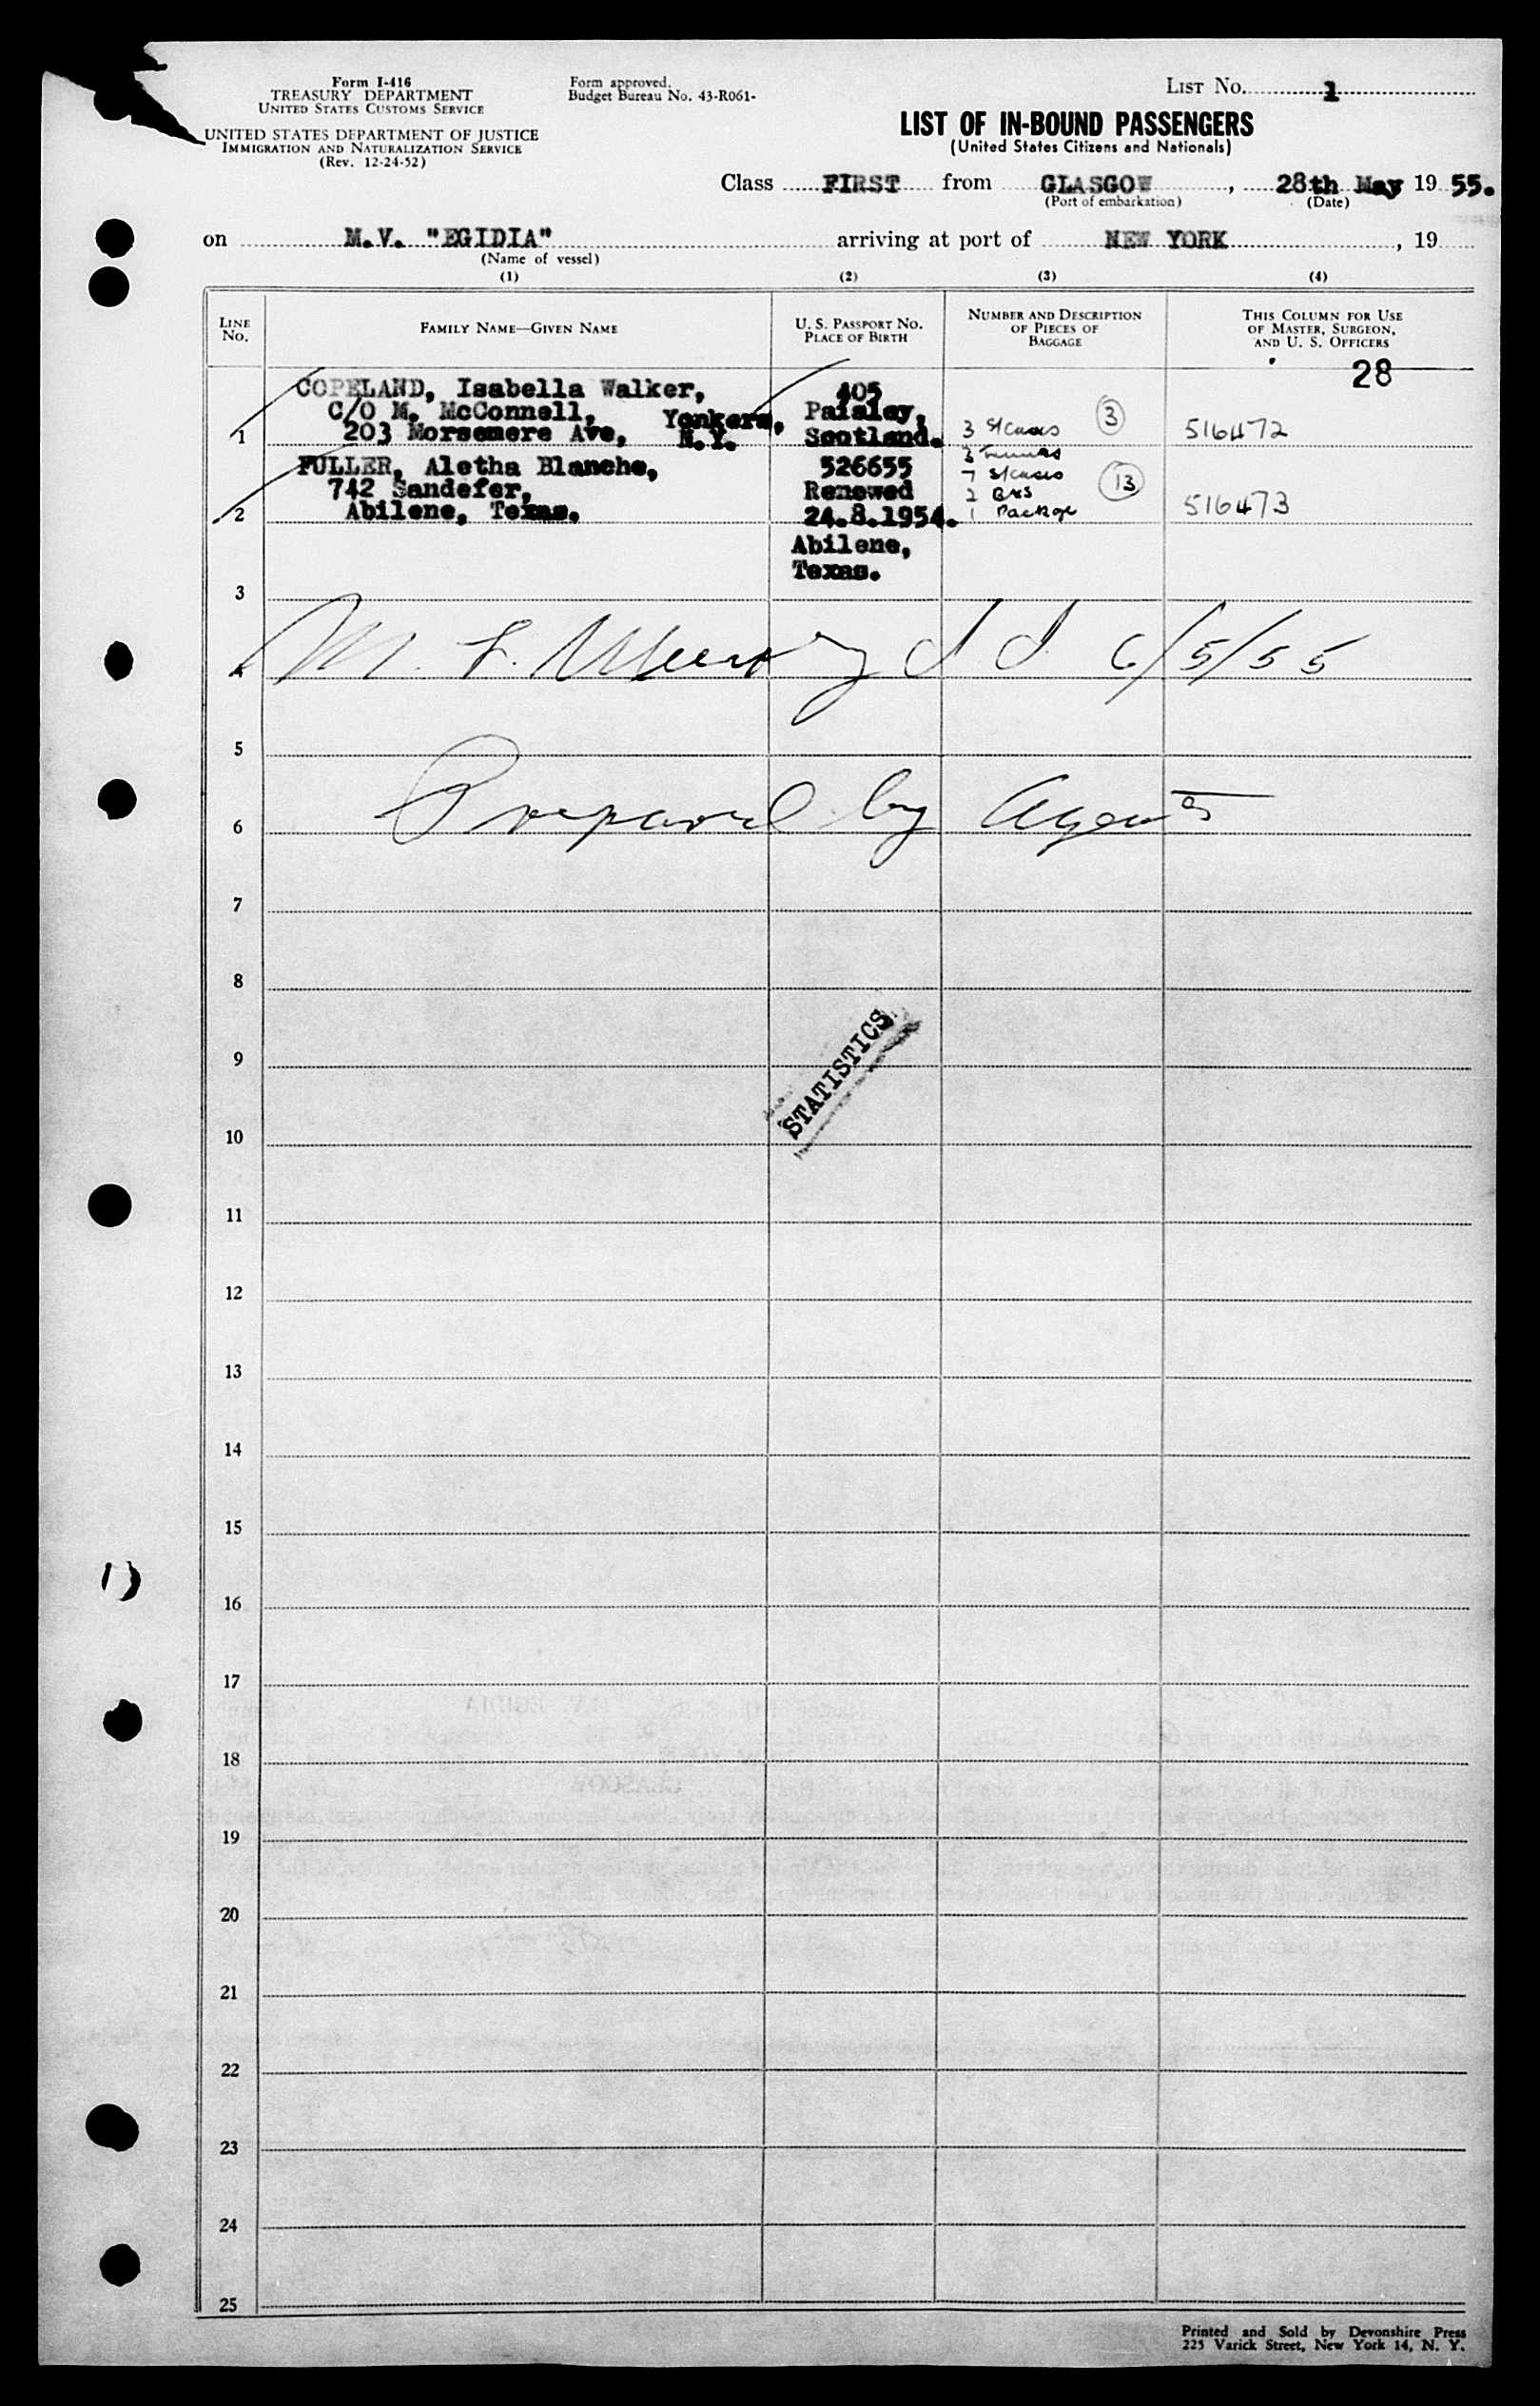 Form I-416
TREASURY DEPARTMENT
UNITED STATES CUSTOMS SERVICE
UNITED STATES DEPARTMENT OF JUSTICE
IMMIGRATION AND NATURALIZATION SERVICE
(Rev. 12-24-52)
Form approved.
Budget Bureau No. 43-R061-
LIST NO. 1
LIST OF IN-BOUND PASSENGERS
(United States Citizens and Nationals)
Class FIRST from GLASGOW, 28th May 19 55.
(Port of embarkation) (Date)
on M.V. "EGIDIA" arriving at port of NEW YORK, 19
(Name of vessel)
(1) (2) (3) (4)
LINE NO.
FAMILY NAME—GIVEN NAME
U. S. PASSPORT NO.
PLACE OF BIRTH
NUMBER AND DESCRIPTION
OF PIECES OF
BAGGAGE
THIS COLUMN FOR USE
OF MASTER, SURGEON,
AND U. S. OFFICERS
28
COPELAND, Isabella Walker, 405
C/O M. McConnell, Yonkers, Paisley,
1 203 Morsemere Ave, N.Y. Scotland. 3 S/Cases 3 516472
3 Trunks
FULLER, Aletha Blanche, 526655 7 S/cases 13
742 Sandefer, Renewed 2 Bxs
2 Abilene, Texas. 24.8.1954. 1 Package 516473
Abilene,
Texas.
3
4 M. F. 6/5/55
5
6 Prepared by Agents
7
8
9
STATISTICS
10
11
12
13
14
15
16
17
18
19
20
21
22
23
24
25
Printed and Sold by Devonshire Press
225 Varick Street, New York 14, N. Y.